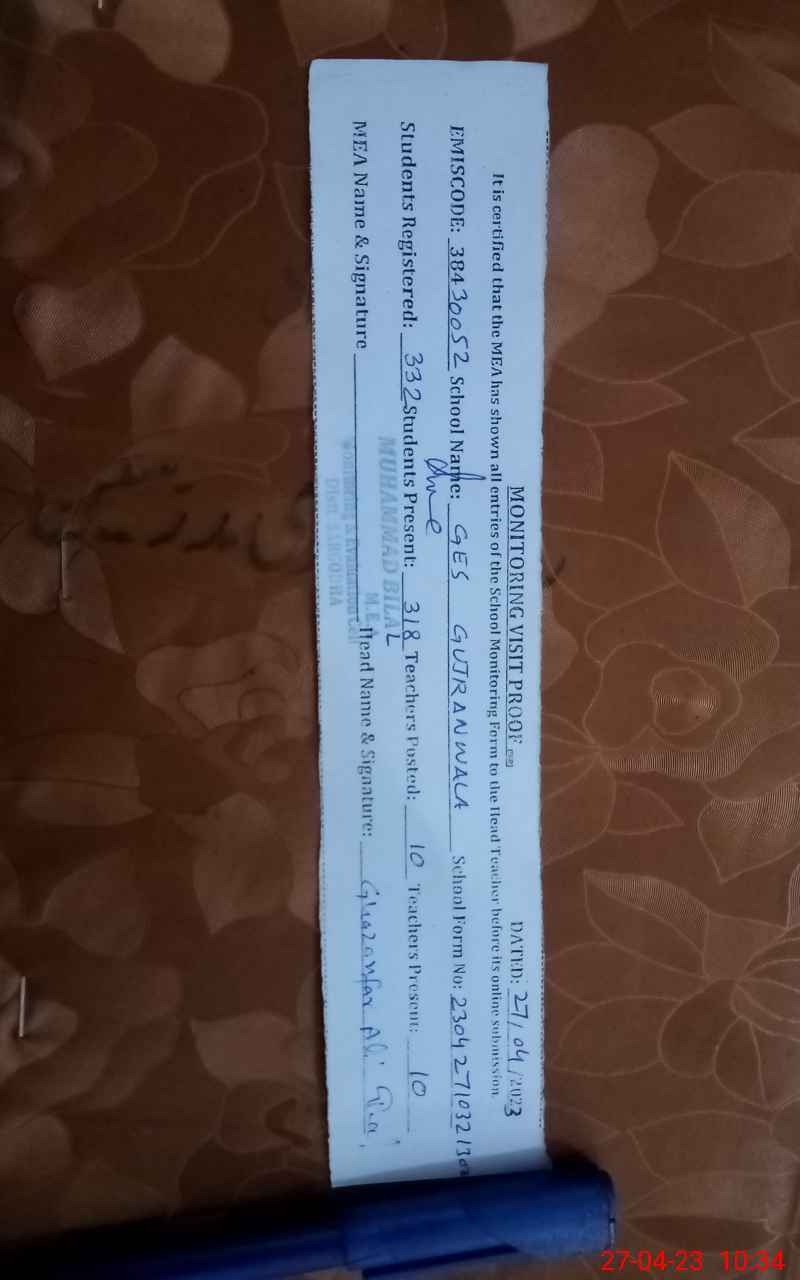 MONITORING VISIT PROOF DATED: 27/04/2023
It is certified that the MEA has shown all entries of the School Monitoring Form to the Head Teacher before its online submission.
EMISCODE: 38430052 School Name: GES GUJRANWALA School Form No: 2304271032130
Students Registered: 332 Students Present: 318 Teachers Posted: 10 Teachers Present: 10
MEA Name & Signature Head Name & Signature: Ghazanfar Ali
MUHAMMAD BILAL
M.E.
Monitoring & Evaluation Cell
Distt: SARGODHA
27-04-23 10:34